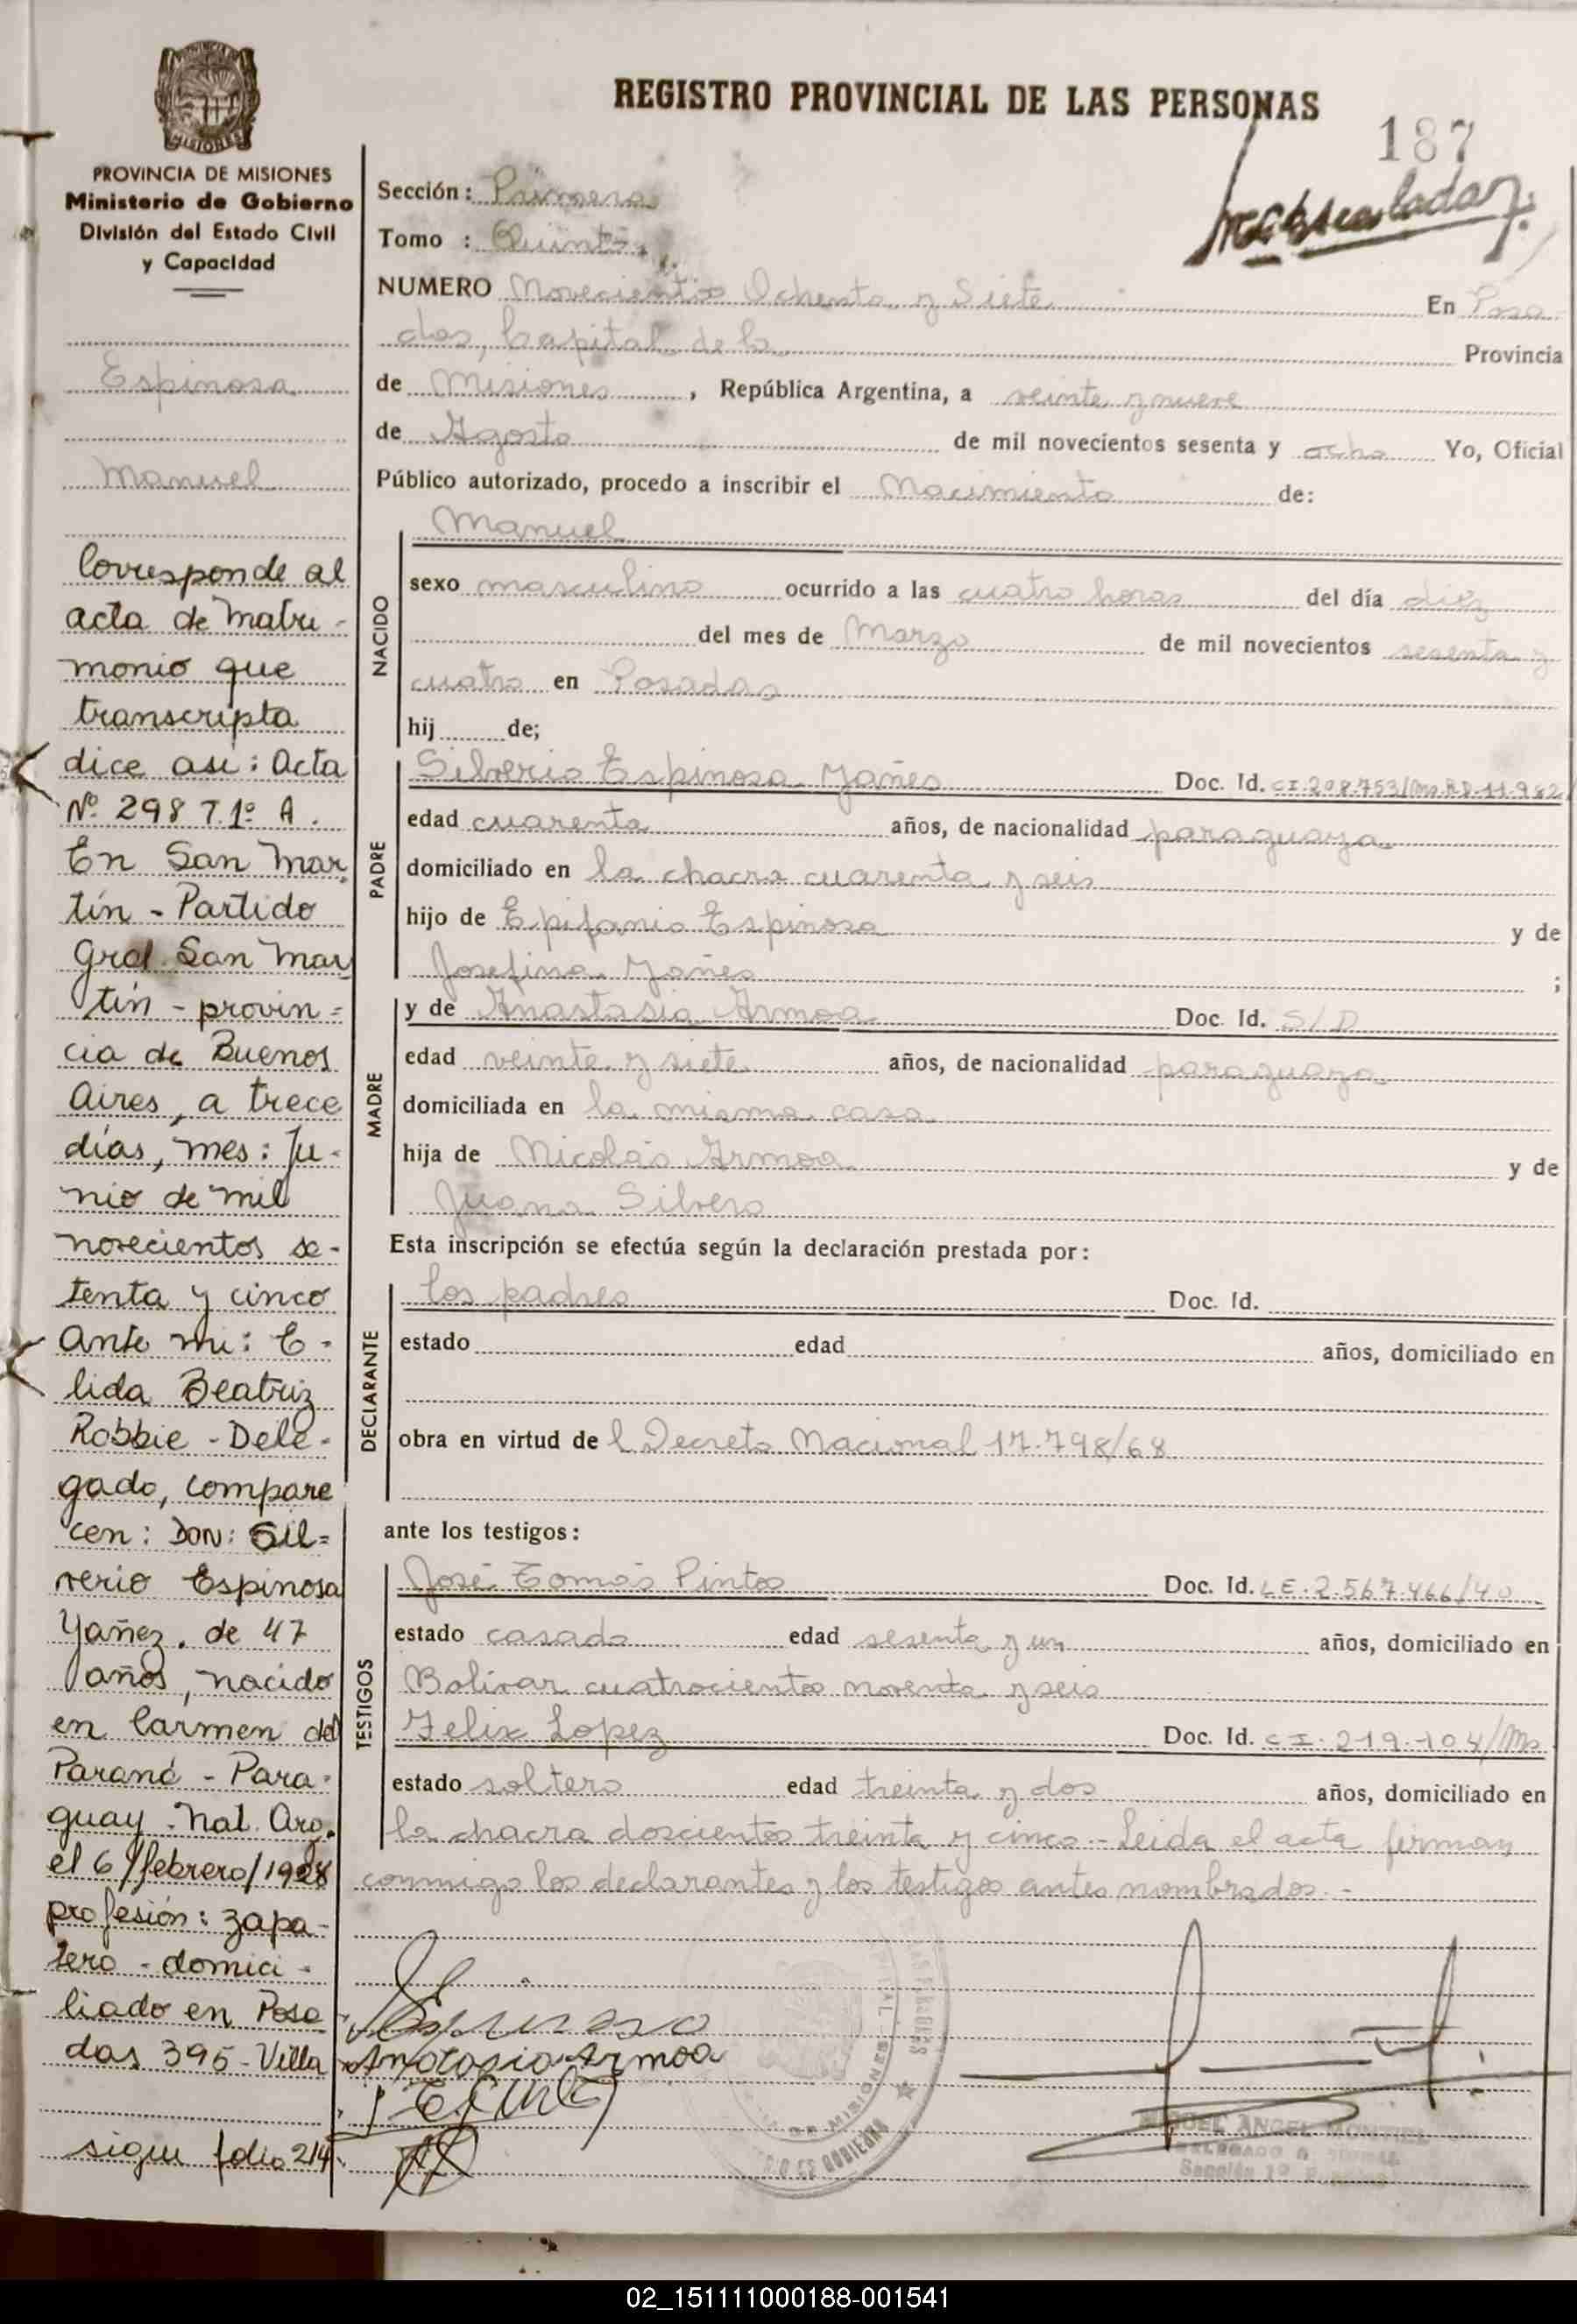 REGISTRO PROVINCIAL DE LAS PERSONAS
187
PROVINCIA DE MISIONES
Ministerio de Gobierno
División del Estado Civil
y Capacidad
Espinosa
Manuel
Corresponde al
acta de Matri-
monio que
transcripta
dice asi: Acta
Nº 298 T.1º A.
En San Mar
tín - Partido
Gral. San Mar
tín - provin=
cia de Buenos
Aires, a trece
días, mes: Ju-
nio de mil
novecientos se-
tenta y cinco
Ante mi: E-
lida Beatriz
Robbie - Dele-
gado, compare
cen: DON: Sil=
verio Espinosa
Yañez. de 47
años, nacido
en Carmen del
Paraná - Para-
guay. Nal. Arg.
el 6/febrero/1928
profesión: zapa-
tero - domici-
liado en Posa
das 395 - Villa
sigue folio 214
Sección: Primera
Tomo : Quinto
NUMERO Novecientos Ochenta y Siete En Posa
das, Capital de la Provincia
de Misiones, República Argentina, a veinte y nueve
de Agosto de mil novecientos sesenta y ocho Yo, Oficial
Público autorizado, procedo a inscribir el Nacimiento de:
NACIDO
Manuel
sexo masculino ocurrido a las cuatro horas del día diez
del mes de Marzo de mil novecientos sesenta y
cuatro en Posadas
hij de;
PADRE
Silverio Espinosa Yañes Doc. Id. CI.208.753/Ms.RD.11.982
edad cuarenta años, de nacionalidad paraguaya
domiciliado en la chacra cuarenta y seis
hijo de Epifanio Espinosa y de
Josefina Yañes ;
MADRE
y de Anastasia Armoa Doc. Id. S/D
edad veinte y siete años, de nacionalidad paraguaya
domiciliada en la misma casa
hija de Nicolás Armoa y de
Juana Silvero
Esta inscripción se efectúa según la declaración prestada por:
DECLARANTE
los padres Doc. Id.
estado edad años, domiciliado en
obra en virtud de l Decreto Nacional 17.798/68
ante los testigos:
TESTIGOS
José Tomás Pintos Doc. Id. LE.2.567.466/40
estado casado edad sesenta y un años, domiciliado en
Bolívar cuatrocientos noventa y seis
Felix Lopez Doc. Id. CI.219.104/Ms
estado soltero edad treinta y dos años, domiciliado en
la chacra doscientos treinta y cinco.- Leida el acta firman
conmigo los declarantes y los testigos antes nombrados.-
Espinoso
Anastasia Armoa
MIGUEL ANGEL MONTIEL
02_151111000188-001541